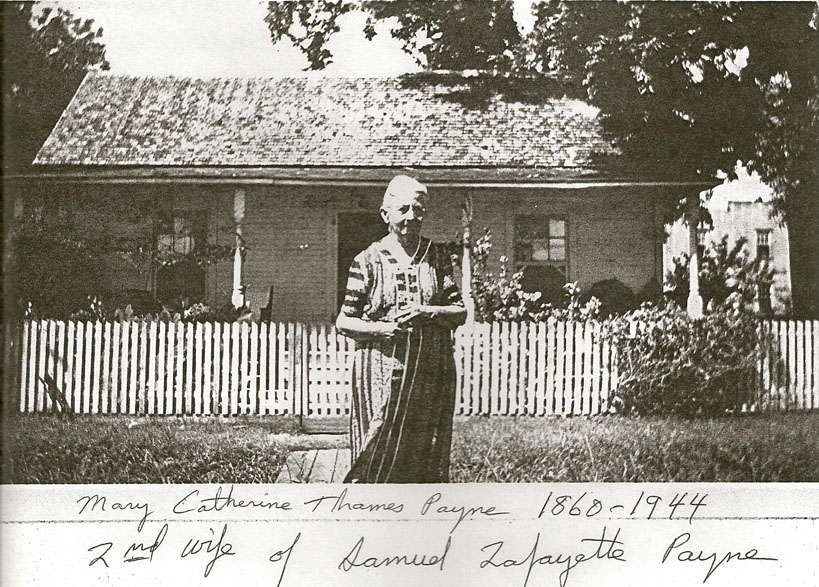 Mary Catherine Thames Payne 1860-1944
2nd wife of Samuel Lafayette Payne